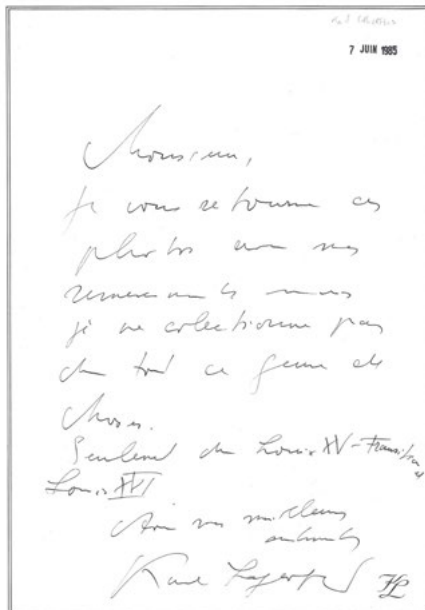 7 JUIN 1985
Monsieur,
Je vous retourne ces
photos avec mes
remerciements mais
je ne colectionne pas
du tout ce genre de
choses.
Seulement du Louis XV - Transition et
Louis XVI
Avec mes meilleurs
sentiments
Karl Lagerfeld KL